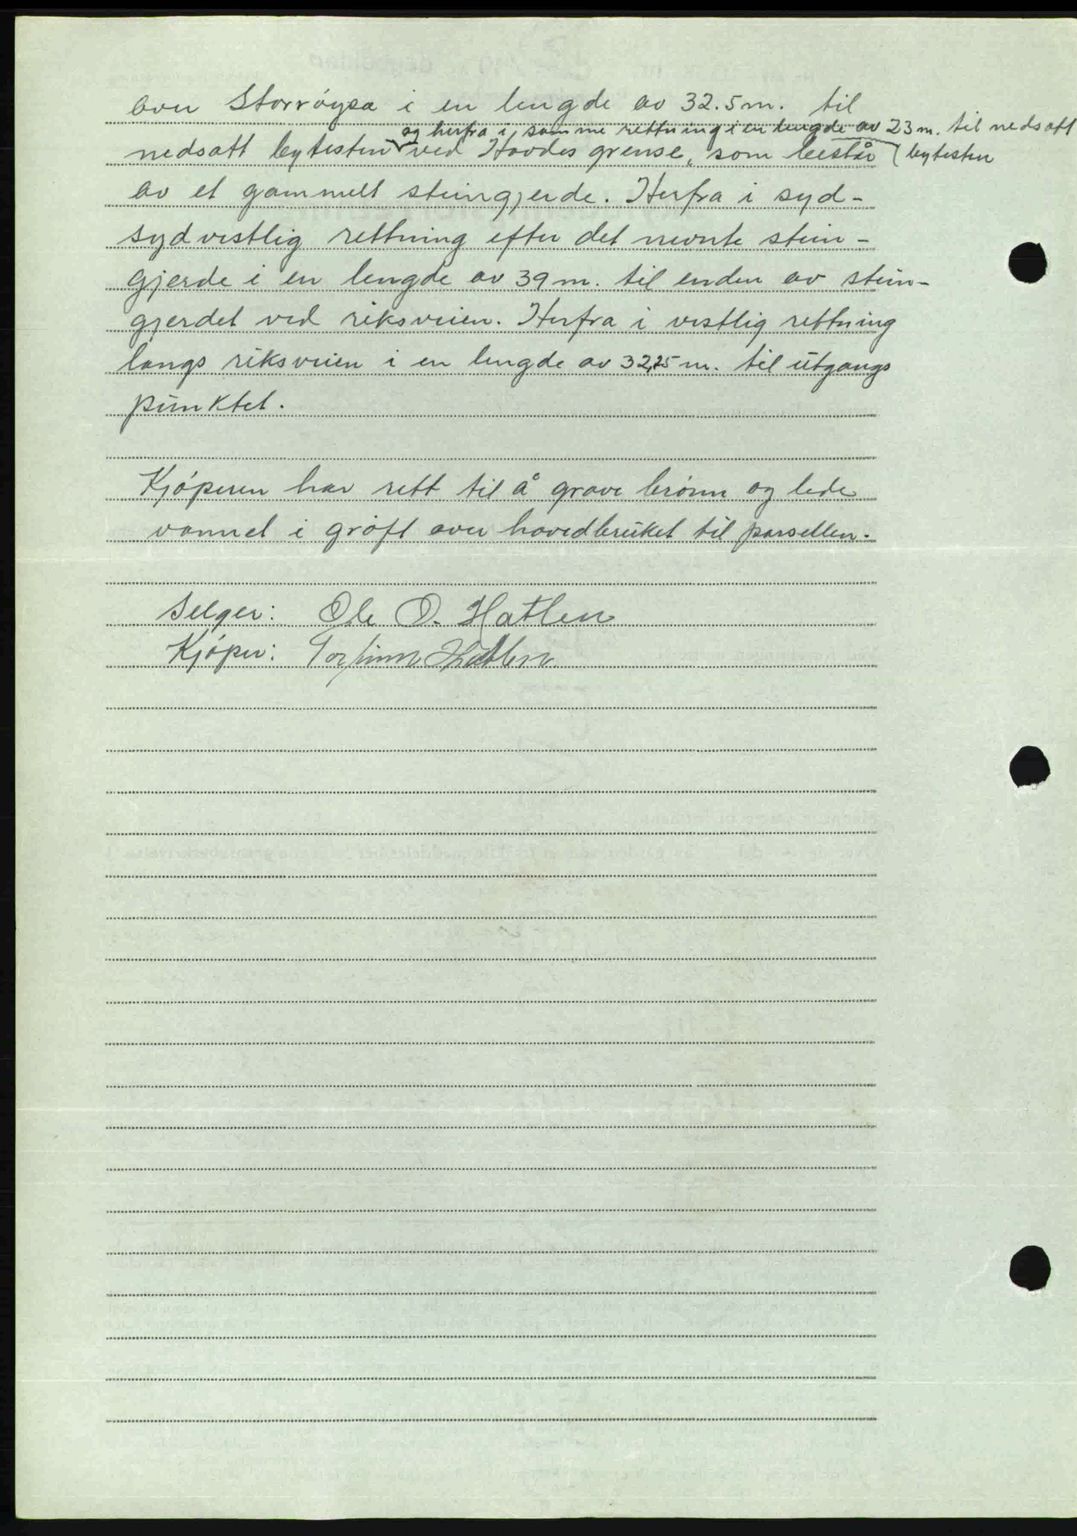 over Storrøysa i en lengde av 32.5 m. til
og herfra i samme rettning i en lengde av 23 m. til nedsatt
nedsatt bytesten ved Hovdes grense, som består bytesten
av et gammelt steingjerde. Herfra i syd-
sydvestlig rettning efter det nevnte stein-
gjerde i en lengde av 39 m. til enden av stein-
gjerdet ved riksveien. Herfra i vestlig rettning
langs riksveien i en lengde av 32,25 m. til utgangs
punktet.
Kjøperen har rett til å grave brønn og lede
vannet i grøft over hovedbruket til parsellen.
Selger: Ole O. Hatlen
Kjøper: Torfinn Hatlen